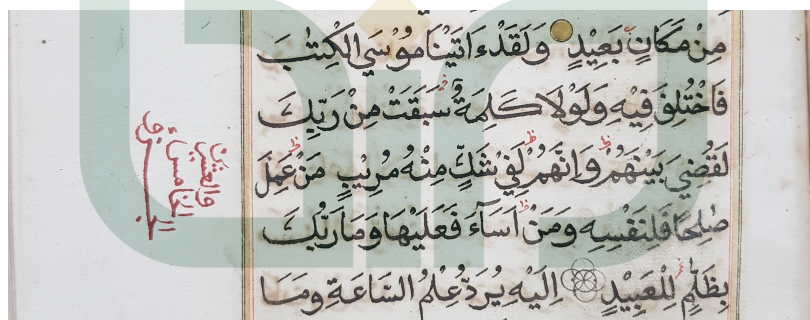 مِنْ مَكَانٍ بَعِيْدٍ وَلَقَدْ ءَاتَيْنَا مُوْسَي الْكِتٰبَ
فَاخْتُلِفَ فِيْهِ وَلَوْلَا كَلِمَةٌ سَبَقَتْ مِنْ رَبِّكَ
لَقُضِيَ بَيْنَهُمْ وَاِنَّهُمْ لَفِيْ شَكٍّ مِنْهُ مُرِيْبٍ مَنْ عَمِلَ
صٰلِحًا فَلِنَفْسِهِ وَمَنْ اَسَآءَ فَعَلَيْهَا وَمَا رَبُّكَ
بِظَلّٰمٍ لِلْعَبِيْدِ اِلَيْهِ يُرَدُّ عِلْمُ السَّاعَةِ وَمَا
الجزء
الخامس
والعشرين